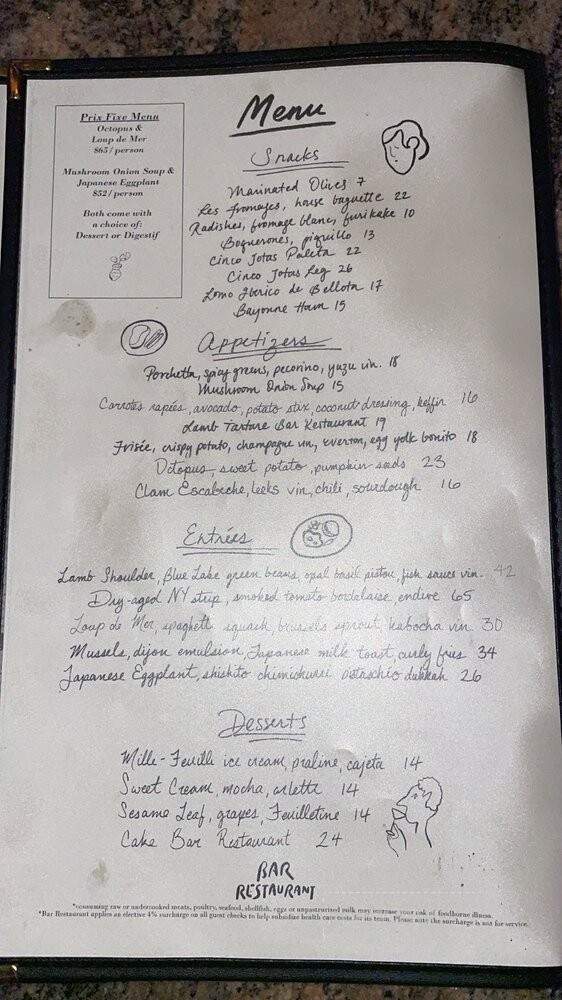 Prix Fixe Menu
Octopus &
Loup de Mer
$65/person
Mushroom Onion Soup &
Japanese Eggplant
$52/person
Both come with
a choice of:
Dessert or Digestif
Menu
Snacks
Marinated Olives 7
Les fromages, house baguette 22
Radishes, fromage blanc, furikake 10
Boquerones, piquillo 13
Cinco Jotas Paleta 22
Cinco Jotas Leg 26
Lomo Iberico de Bellota 17
Bayonne Ham 15
Appetizers
Porchetta, spicy greens, pecorino, yuzu vin. 18
Mushroom Onion Soup 15
Carrotes rapées, avocado, potato stix, coconut dressing, keffir 16
Lamb Tartare Bar Restaurant 19
Frisée, crispy potato, champagne vin, everton, egg yolk bonito 18
Octopus - sweet potato, pumpkin seeds 23
Clam Escabeche, leeks vin, chili, sourdough 16
Entrées
Lamb Shoulder, Blue Lake green beans, opal basil pistou, fish sauce vin. 42
Dry-aged NY strip, smoked tomato bordelaise, endive 65
Loup de Mer, spaghetti squash, brussels sprout, kabocha vin 30
Mussels, dijon emulsion, Japanese milk toast, curly fries 34
Japanese Eggplant, shishito chimichurri pistaschio dukkah 26
Desserts
Mille-Feuille ice cream, praline, cajeta 14
Sweet Cream, mocha, arlette 14
Sesame Leaf, grapes, Feuilletine 14
Cake Bar Restaurant 24
BAR
RESTAURANT
*consuming raw or undercooked meats, poultry, seafood, shellfish, eggs or unpasteurized milk may increase your risk of foodborne illness.
*Bar Restaurant applies an elective 4% surcharge on all guest checks to help subsidize health care costs for its team. Please note the surcharge is not for service.